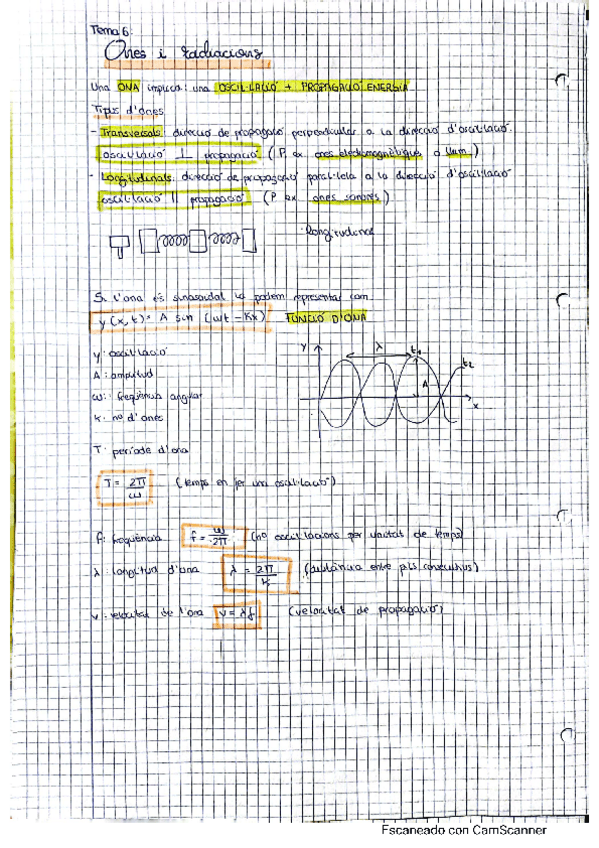 Tema 6:
Ones i radiacions
Una ONA implica: una OSCIL·LACIÓ + PROPAGACIÓ ENERGIA
Tipus d'ones
- Transversals: direcció de propagació perpendicular a la direcció d'oscil·lació.
oscil·lació ⊥ propagació (P. ex. ones electromagnètiques o llum)
- Longitudinals: direcció de propagació paral·lela a la direcció d'oscil·lació
oscil·lació || propagació (P. ex. ones sonores)
Longitudinal
Si l'ona és sinusoidal la podem representar com
y(x,t) = A sin (ωt - Kx) FUNCIÓ D'ONA
y: oscil·lació
A: amplitud
ω: freqüència angular
K: nº d'ones
y λ t1 t2
A
x
T: període d'ona
T = 2π/ω (temps en fer una oscil·lació)
f: freqüència f = ω/2π (nº oscil·lacions per unitat de temps)
λ: longitud d'ona λ = 2π/K (distància entre pics consecutius)
v: velocitat de l'ona v = λf (velocitat de propagació)
Escaneado con CamScanner